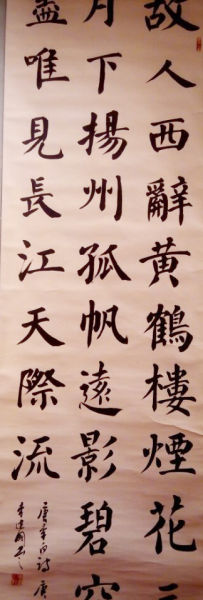 故人西辭黄鶴樓煙花三
月下揚州孤帆遠影碧空
盡唯見長江天際流
唐李白詩